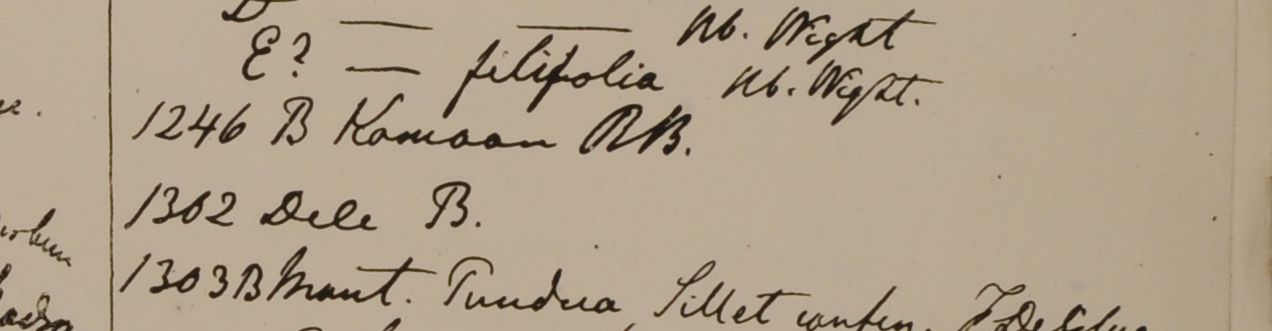 D — — Hb. Wight
E? — filifolia Hb. Wight.
1246 B Kamaon RB.
1302 Dele B.
1303 B Mont. Pundua Sillet confin. F. De Silva